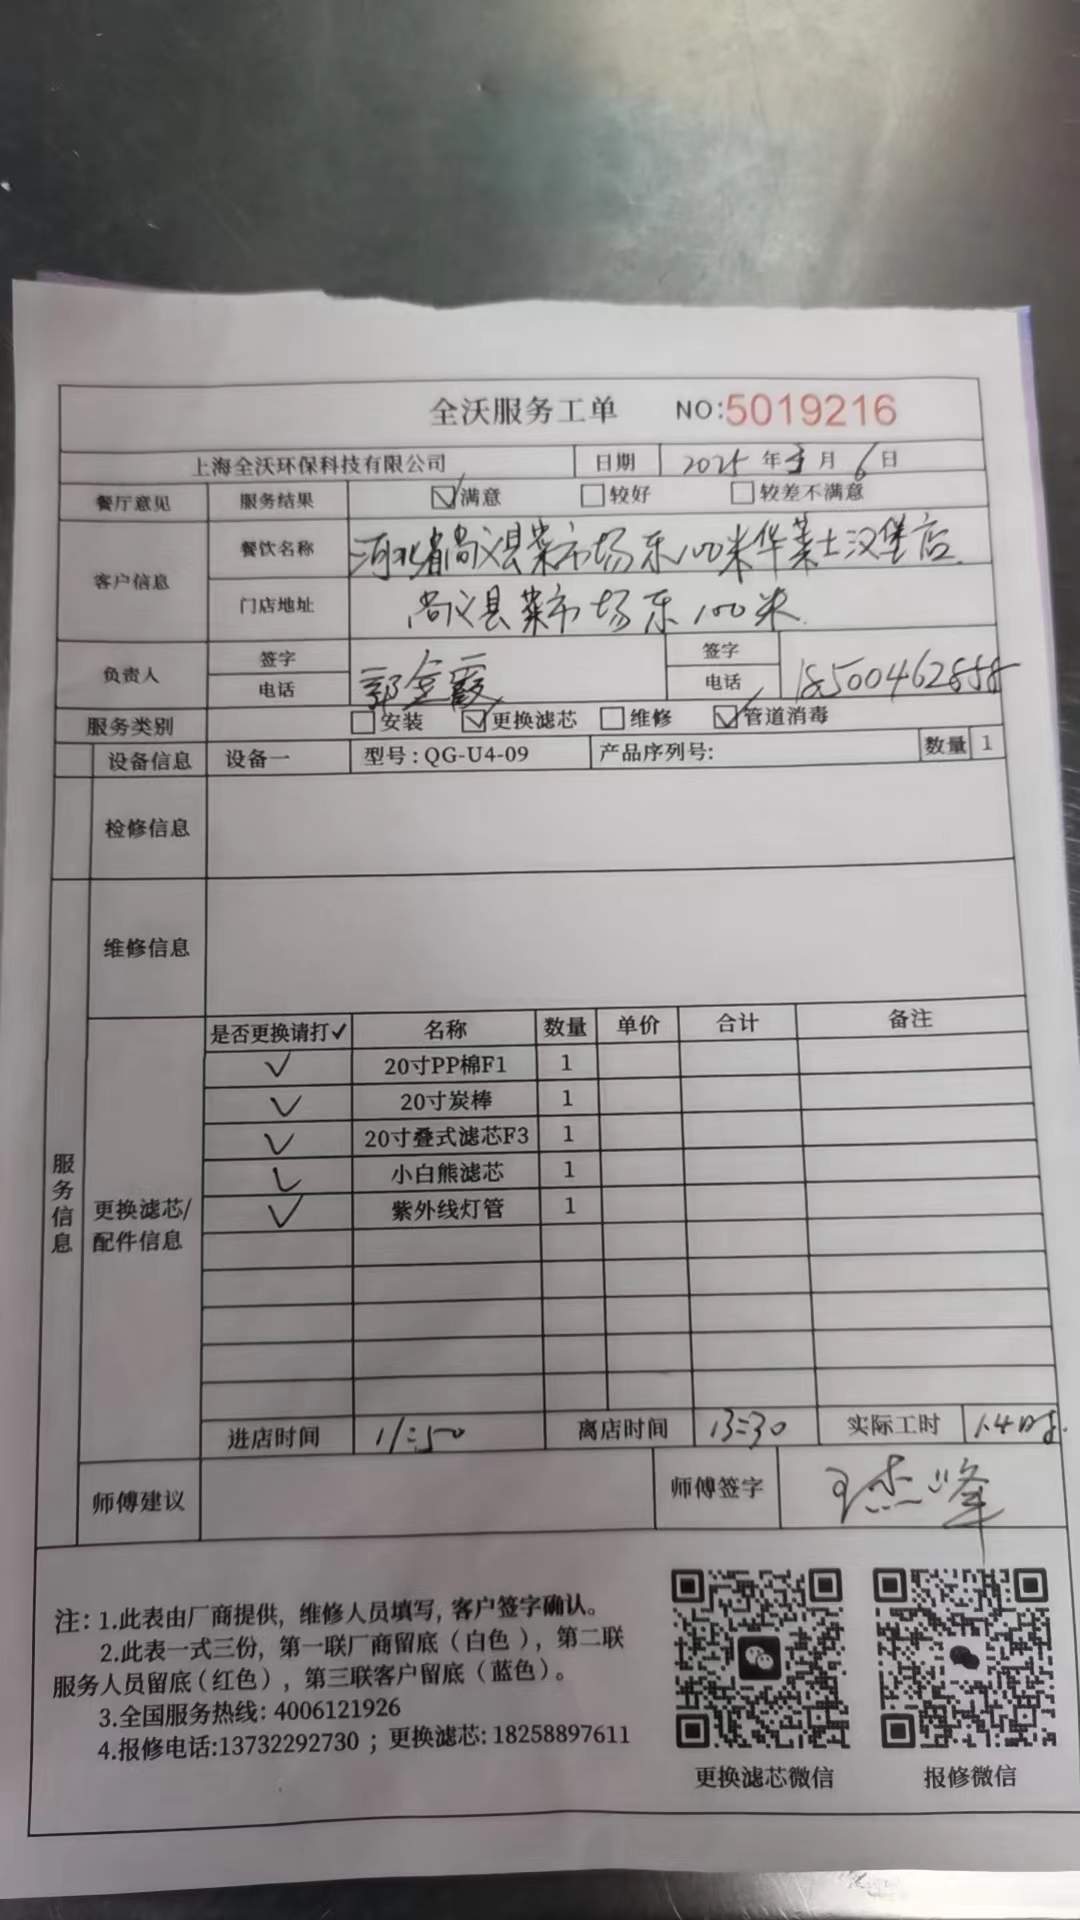 全沃服务工单 NO:5019216
上海全沃环保科技有限公司 日期 2025 年 3 月 6 日
餐厅意见 服务结果 ☑满意 □较好 □较差不满意
客户信息 餐饮名称 河北省尚义县菜市场东100米华莱士汉堡店
门店地址 尚义县菜市场东100米
负责人 签字 电话 郭金霞 签字 电话 18500462858
服务类别 □安装 ☑更换滤芯 □维修 ☑管道消毒
设备信息 设备一 型号:QG-U4-09 产品序列号: 数量 1
检修信息
维修信息
服务信息
更换滤芯/配件信息
是否更换请打✓ 名称 数量 单价 合计 备注
✓ 20寸PP棉F1 1
✓ 20寸炭棒 1
✓ 20寸叠式滤芯F3 1
✓ 小白熊滤芯 1
✓ 紫外线灯管 1
进店时间 11:50 离店时间 13:30 实际工时 1.4时
师傅建议 师傅签字 王杰峰
注:1.此表由厂商提供,维修人员填写,客户签字确认。
2.此表一式三份,第一联厂商留底(白色),第二联
服务人员留底(红色),第三联客户留底(蓝色)。
3.全国服务热线:4006121926
4.报修电话:13732292730;更换滤芯:18258897611
更换滤芯微信 报修微信